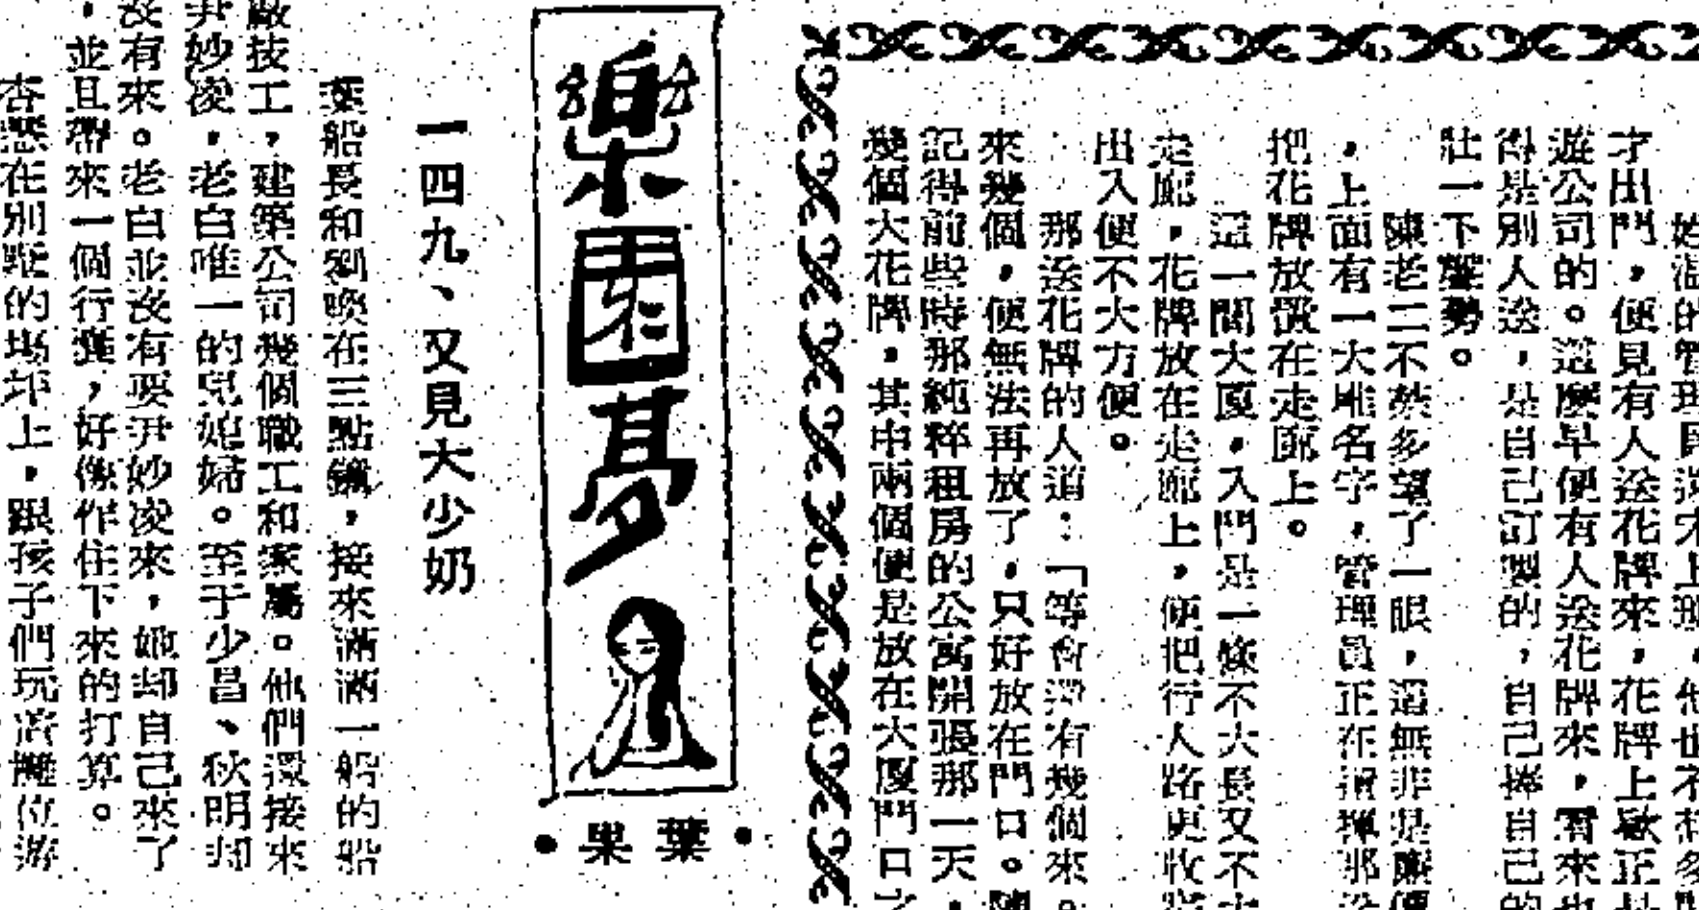 才出門，便見有人送花牌來，花牌上
遊公司的。這麼早便有人送花牌來，看來也
得是別人送，是自己訂製的，自己捧自己的
壯一下聲勢。
陳老二不禁多望了一眼，這無非是
，上面有一大堆名字，管理員正在指揮那
把花牌放置在走廊上。
這一間大廈，入門是一條不大長又不
走廊，花牌放在走廊上，便把行人路更收
出入便不大方便。
那送花牌的人道：「等會還有幾個來。
來幾個，便無法再放了，只好放在門口。陳
記得前些時那純粹租房的公寓開張那一天，
幾個大花牌，其中兩個便是放在大廈門口之
樂園夢
葉果
一四九、又見大少奶
葉船長和劉喚在三點鐘，接來滿滿一船的船
廠技工，建築公司幾個職工和家屬。他們還接來
尹妙凌，老白唯一的兒媳婦。至于少昌、秋明却
沒有來。老白並沒有要尹妙凌來，她却自己來了
，並且帶來一個行李，好像作住下來的打算。
在別墅的場坪上，跟孩子們玩